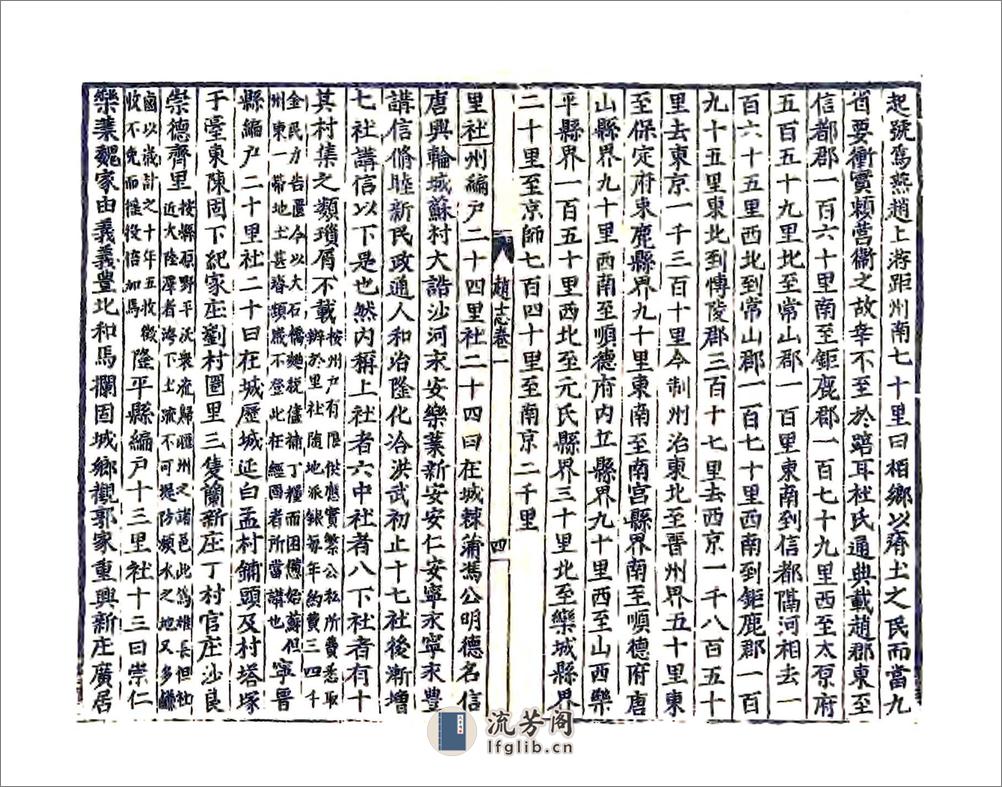 起號爲燕趙上游距州南七十里曰栢鄉以瘠土之民而當九
省要衝實賴營衞之故幸不至於踣耳杜氏通典載趙郡東至
信都郡一百六十里南至鉅鹿郡一百七十九里西至太原府
五百五十九里北至常山郡一百里東南到信都隔河相去一
百六十五里西北到常山郡一百七十里西南到鉅鹿郡一百
九十五里東北到愽陵郡三百十七里去西京一千八百五十
里去東京一千三百十里今制州治東北至晋州界五十里東
至保定府束鹿縣界九十里東南至南宫縣界南至順德府唐
山縣界九十里西南至順德府内丘縣界九十里西至山西樂
平縣界一百五十里西北至元氏縣界三十里北至欒城縣界
二十里至京師七百四十里至南京二千里
趙志卷一
四
里社州編戸二十四里社二十四曰在城棘蒲馮公明德名信
唐興輪城蘇村大誥沙河永安樂業新安安仁安寧永寧永豊
講信脩睦新民政通人和治隆化洽洪武初止十七社後漸增
七社講信以下是也然内稱上社者六中社者八下社者有十
其村集之類瑣屑不載
按州戸有限供應實繁公私所費悉取
辦於里社随地派銀每年約費三四千
金民力告匱今以大石橋
補丁糧而困憊始蘇但
州東一帶地土甚瘠頻歲不登此在經國者所當講也
寧晋
縣編戸二十里社二十曰在城歷城延白孟村鋪頭及村塔塚
于臺東陳固下紀家庄劉村圖里三隻蘭新庄丁村官庄沙良
崇德齊里
按縣原野平
衆流歸匯州之諸邑此爲
長但
近大陸澤者洿下土
不可堤防頻水之地又多
國以歲計之十年五收
收不免而徭役倍加焉
隆平縣編戸十三里社十三曰崇仁
樂業魏家由義義豊北和馬欄固城鄉觀郭家重興新庄廣居
流芳阁
lfglib.cn